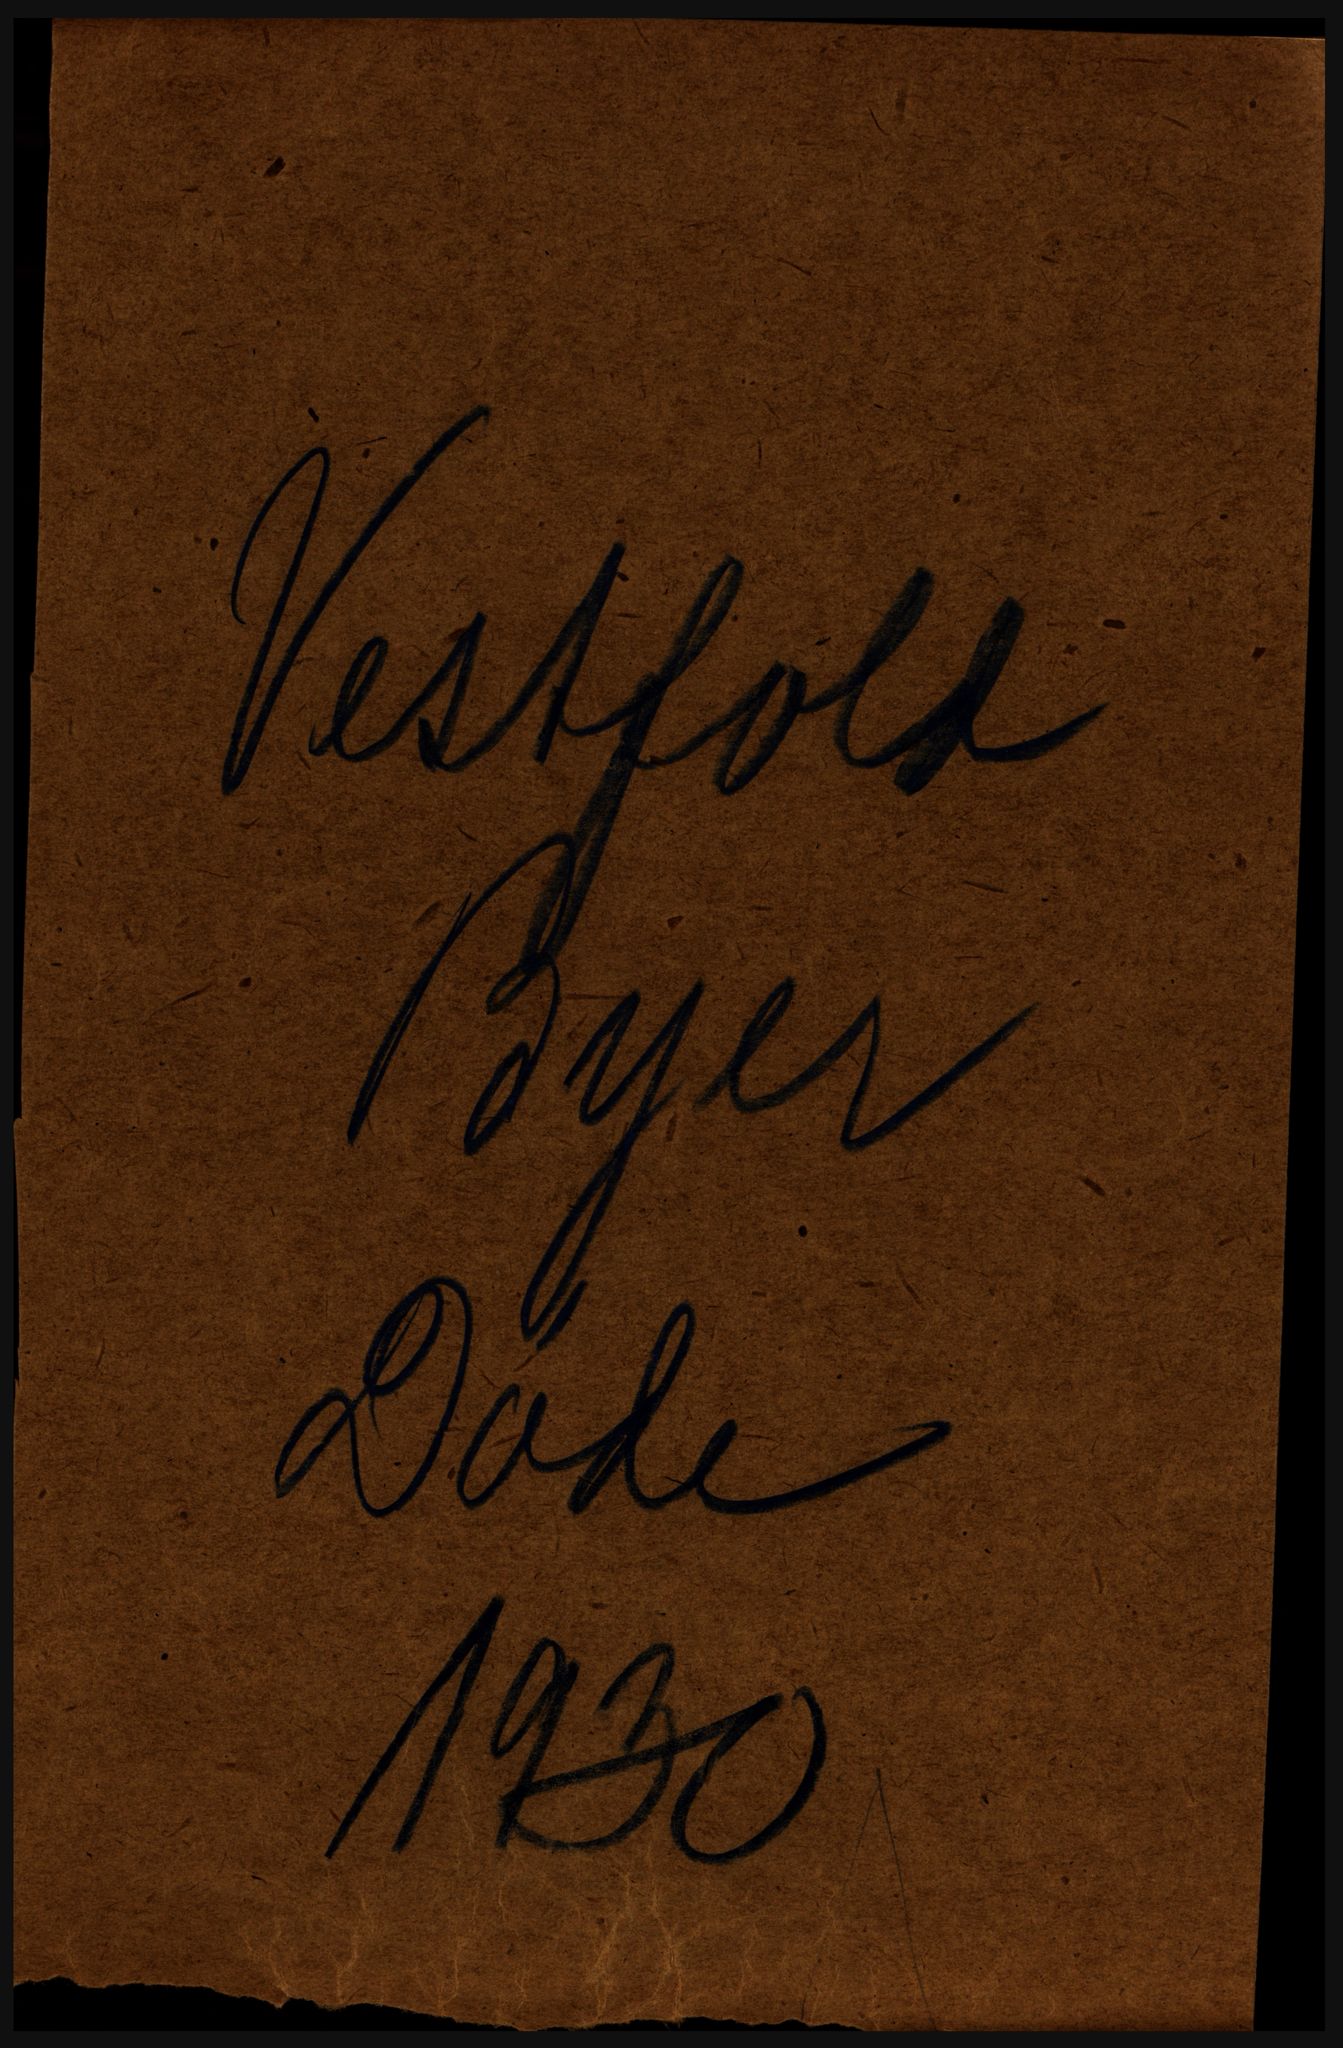 Vestfold
Byer
Døde
1930